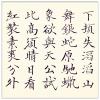 下頓失滔滔山
舞銀蛇原馳蠟
象欲與天公試
比高須晴日看
紅裝素裹分外